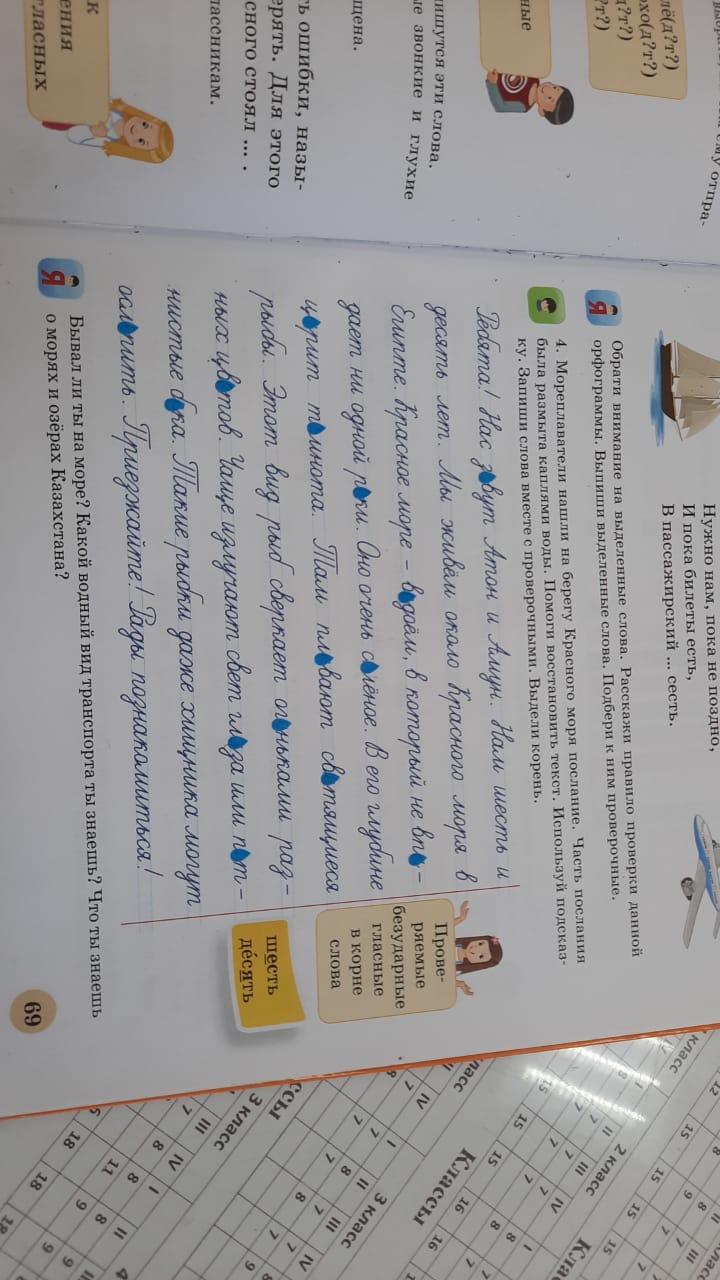 лё(д?т?)
хо(д?т?)
д?т?)
?т?)
ные
пишутся эти слова.
ые звонкие и глухие
щена.
ь ошибки, назы-
ерять. Для этого
сного стоял ... .
лассникам.
к
ения
гласных
ему отпра-
Нужно нам, пока не поздно,
И пока билеты есть,
В пассажирский ... сесть.
Я
Обрати внимание на выделенные слова. Расскажи правило проверки данной
орфограммы. Выпиши выделенные слова. Подбери к ним проверочные.
4. Мореплаватели нашли на берегу Красного моря послание. Часть послания
была размыта каплями воды. Помоги восстановить текст. Используй подсказ-
ку. Запиши слова вместе с проверочными. Выдели корень.
Ребята! Нас з вут Атон и Амун. Нам шесть и
десять лет. Мы живём около Красного моря в
Египте. Красное море – в доём, в который не вп -
дает ни одной р ки. Оно очень с лёное. В его глубине
ц рит т мнота. Там пл вают св тящиеся
рыбы. Этот вид рыб сверкает ог ньками раз-
ных цв тов. Чаще излучают свет гл за или п т-
нистые б ка. Такие рыбки даже хищника могут
осл пить. Приезжайте! Рады познакомиться!
Прове-
ряемые
безударные
гласные
в корне
слова
шесть
де́сять
Я
Бывал ли ты на море? Какой водный вид транспорта ты знаешь? Что ты знаешь
о морях и озёрах Казахстана?
69
2 класс
3 класс
3 класс
Классы